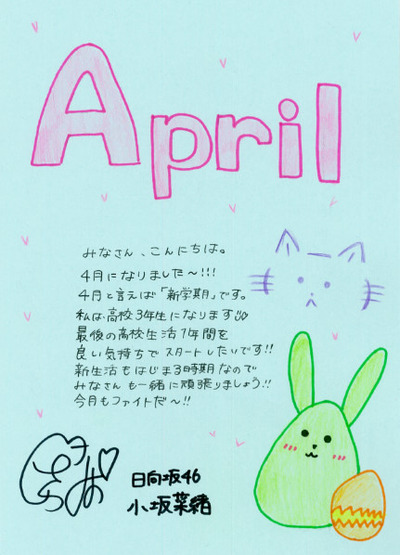 April
みなさん、こんにちは。
4月になりました〜!!!
4月と言えば「新学期」です。
私は、高校3年生になります
最後の高校生活1年間を
良い気持ちでスタートしたいです!!
新生活もはじまる時期なので
みなさんも一緒に頑張りましょう!!
今月もファイトだ〜!!
日向坂46
小坂菜緒